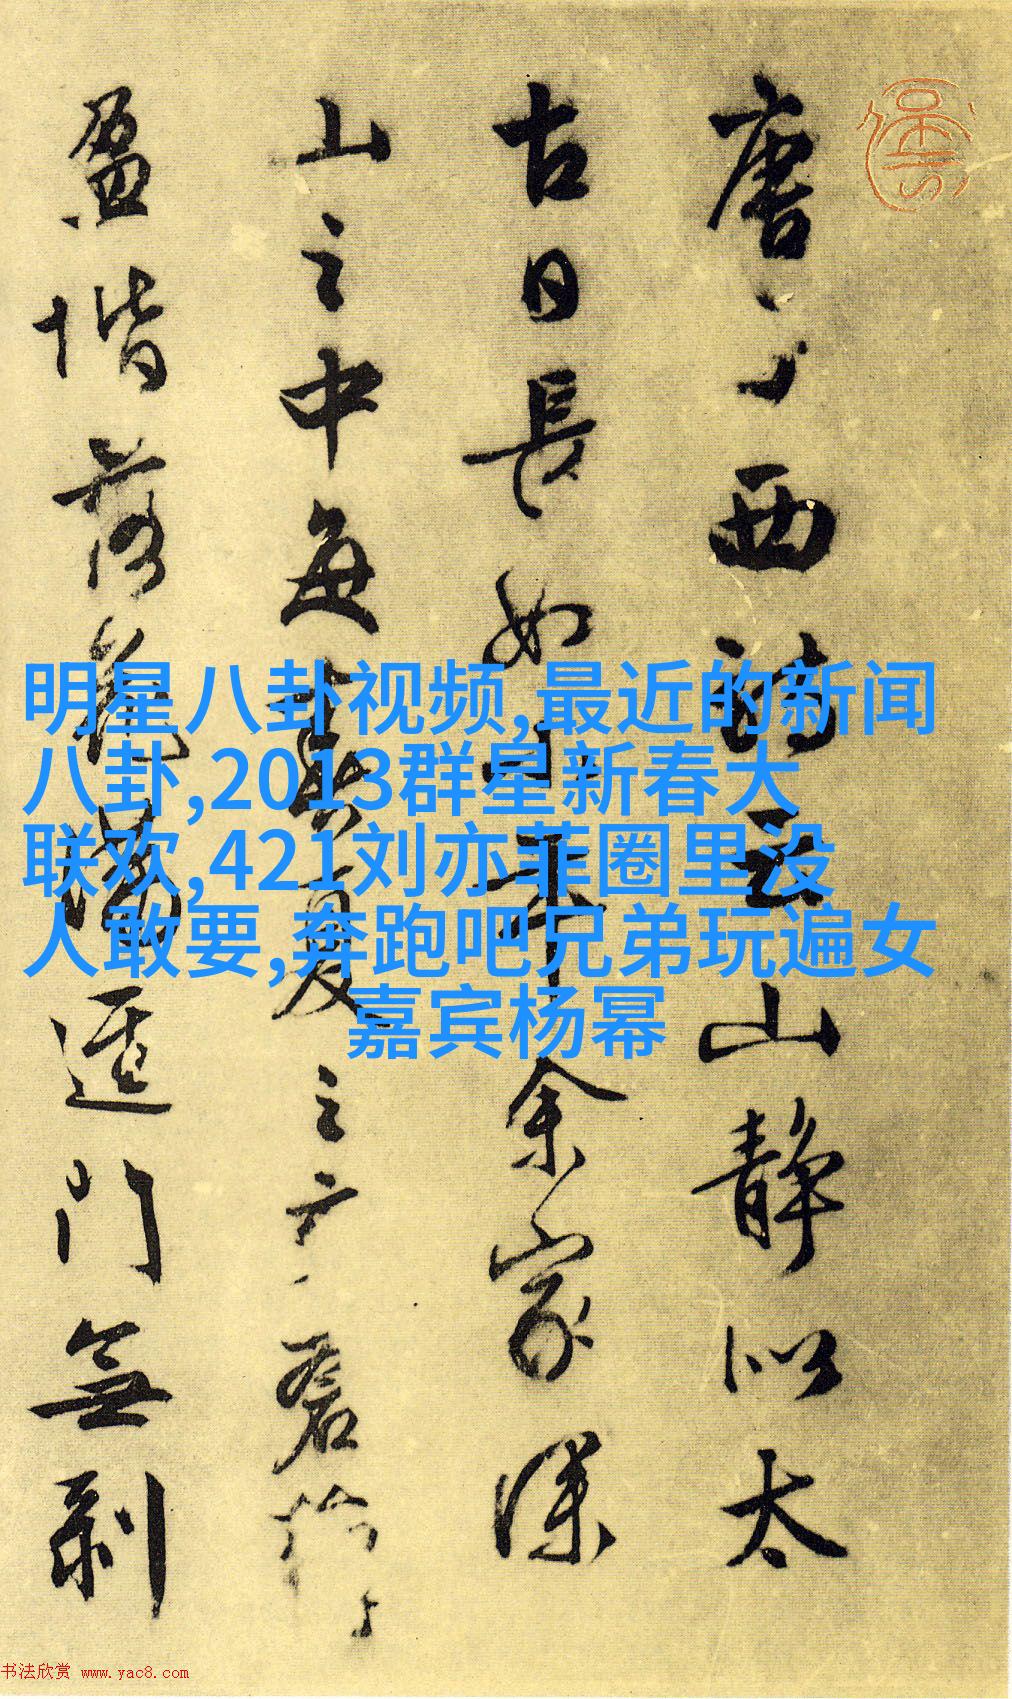 唐子西詩云山静似太
古日長如小年余家深
山之中每春夏之交蒼蘚
盈堦落花滿逕門無剥
明星八卦视频,最近的新闻
八卦,2013群星新春大
联欢,421刘亦菲圈里没
人敢要,奔跑吧兄弟玩遍女
嘉宾杨幂
书法欣赏 www.yac8.com